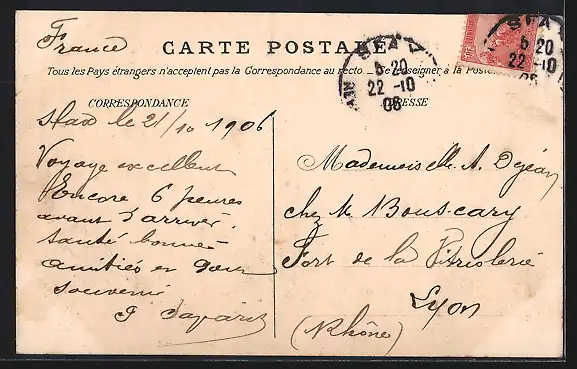 France
CARTE POSTALE
Tous les Pays étrangers n'acceptent pas la Correspondance au recto _ Se renseigner à la Poste
CORRESPONDANCE
ADRESSE
SFAX
5 20
22 -10
06
SFAX
5 20
22 -10
06
Sfax le 21/10 1906
Voyage excellent
Encore 6 heures
avant d'arriver.
Santé bonne -
amitiés et bon
souvenir
Mademoiselle A. Dejean
chez M. Bouscary
Fort de la Vitriolerie
Lyon
(Rhône)